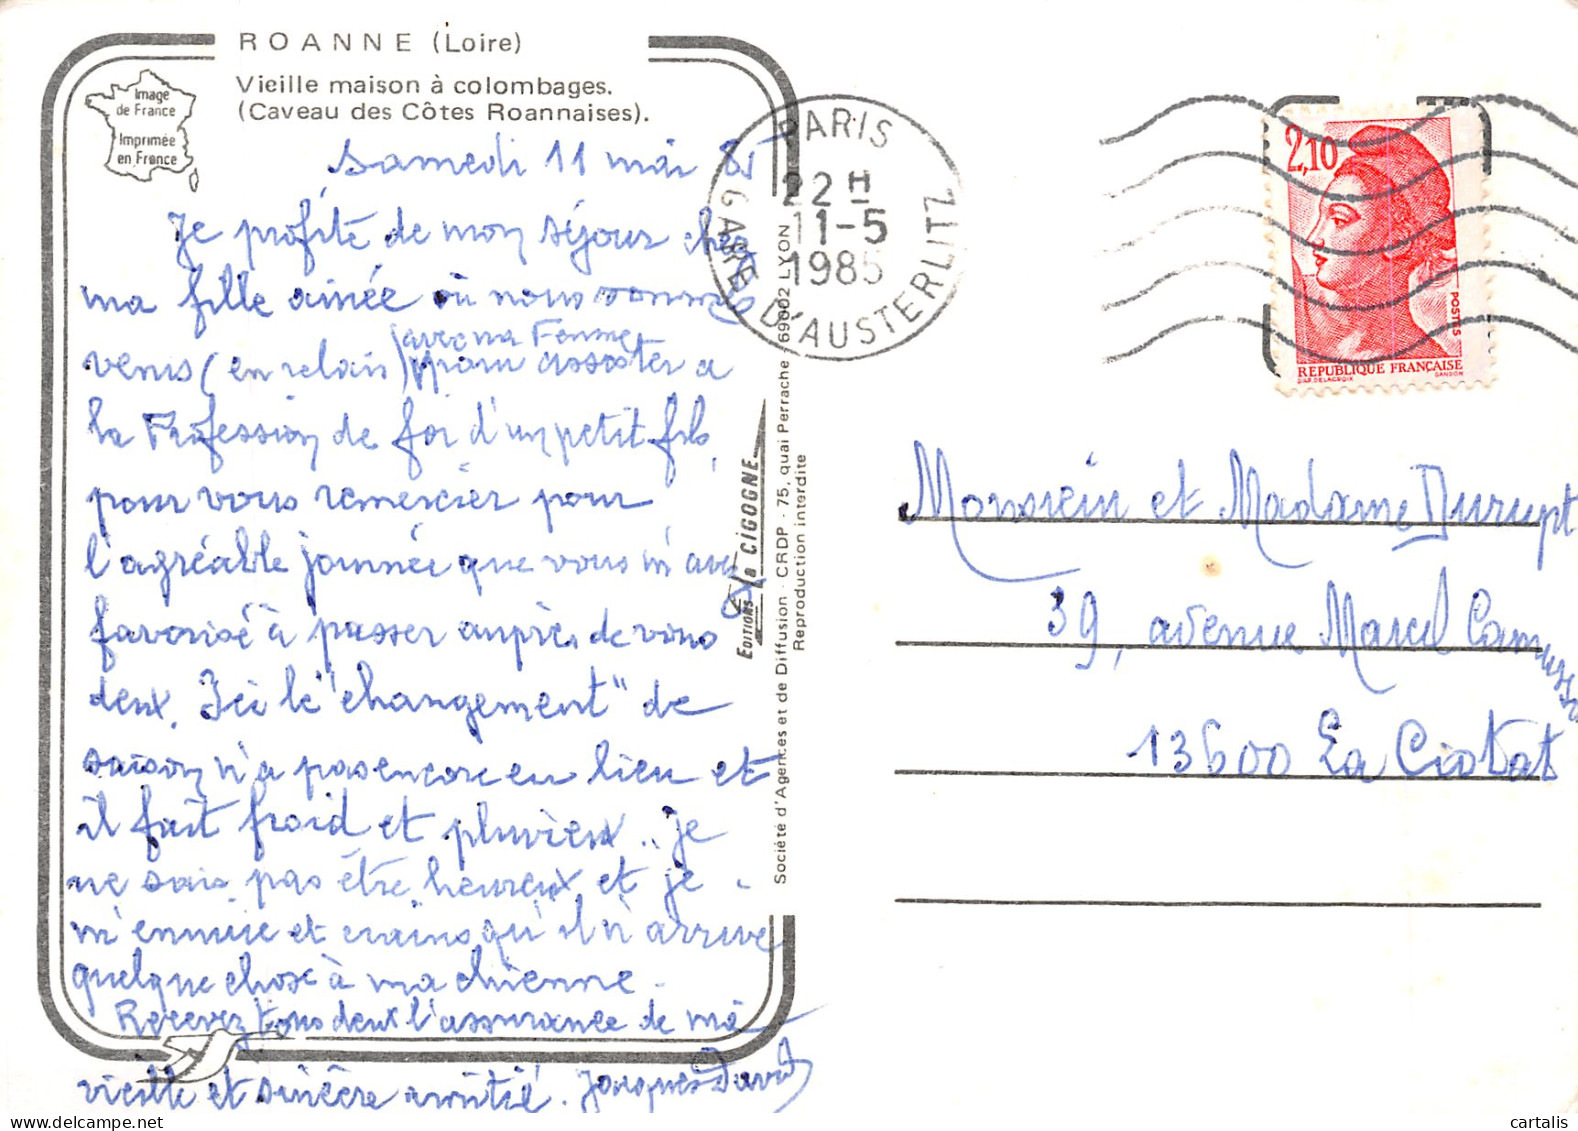 ROANNE (Loire)
Vieille maison à colombages.
(Caveau des Côtes Roannaises).
Image
de France
Imprimée
en France
Samedi 11 mai 85
Je profite de mon séjour chez
ma fille ainée où nous sommes
venus (en relais) avec ma Femme
pour assister a
la Profession de foi d'un petit fils,
pour vous remercier pour
l'agréable journée que vous m'avez
favorisé à passer auprès de vous
deux. Ici le "changement" de
saison n'a pas encore eu lieu et
il fait froid et pluvieux.. Je
ne sais pas être heureux et je
m'ennuie et crains qu'il n'arrive
quelque chose à ma chienne.
Recevez tous deux l'assurance de ma
vieille et sincère amitié. Jacques David
EDITIONS La CIGOGNE
Société d'Agences et de Diffusion - CRDP - 75, quai Perrache 69002 LYON
Reproduction interdite
PARIS
22 H
11-5
1985
GARE D'AUSTERLITZ
2,10
POSTES
REPUBLIQUE FRANÇAISE
D'AP. DELACROIX GANDON
Monsieur et Madame Durupt
39, avenue Marcel Camusso
13600 La Ciotat
cartalis